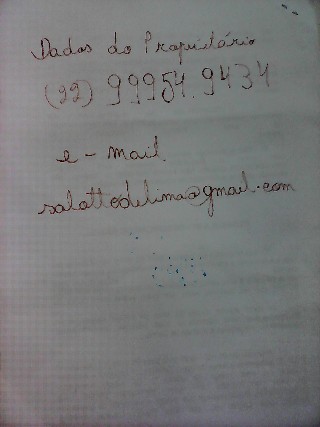 Dados do Proprietário
(22) 99954.9434
e-mail
salattedelima@gmail.com